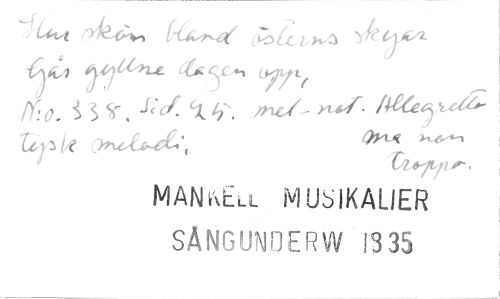 Hur skön bland österns skyar
Går gyllne dagen opp,
N:o. 338. Sid. 25. mel-not. Allegretto
tysk melodi, ma non
troppo.
MANKELL MUSIKALIER
SÅNGUNDERW 1835